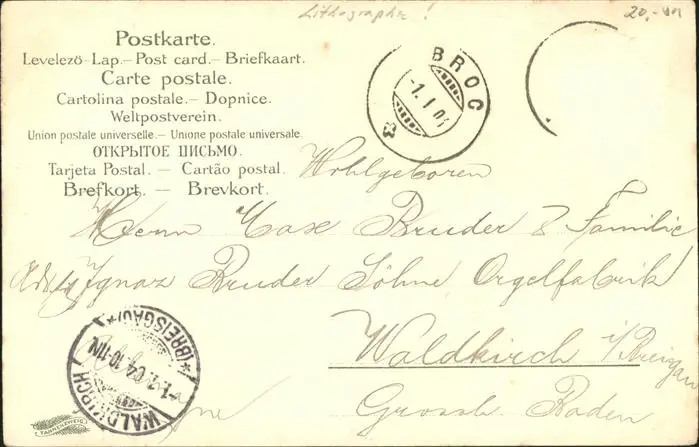 Lithographie !
20,- DM
Postkarte.
Levelező-Lap. – Post card. – Briefkaart.
Carte postale.
Cartolina postale. – Dopnice.
Weltpostverein.
Union postale universelle. – Unione postale universale.
ОТКРЫТОЕ ПИСЬМО.
Tarjeta Postal. — Cartão postal.
Brefkort. — Brevkort.
BROC
-1. I 04
Wohlgeboren
Herrn Max Bruder & Familie
Ignaz Bruder Söhne Orgelfabrik
Waldkirch i/Breisgau
Grossh. Baden
WALDKIRCH
04. 10-11N.
*(BREISGAU)*
E. TANNENZWEIG